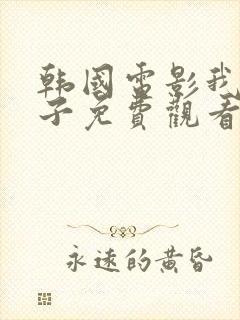 韩國電影我
子免費觀看
永遠的黄昏